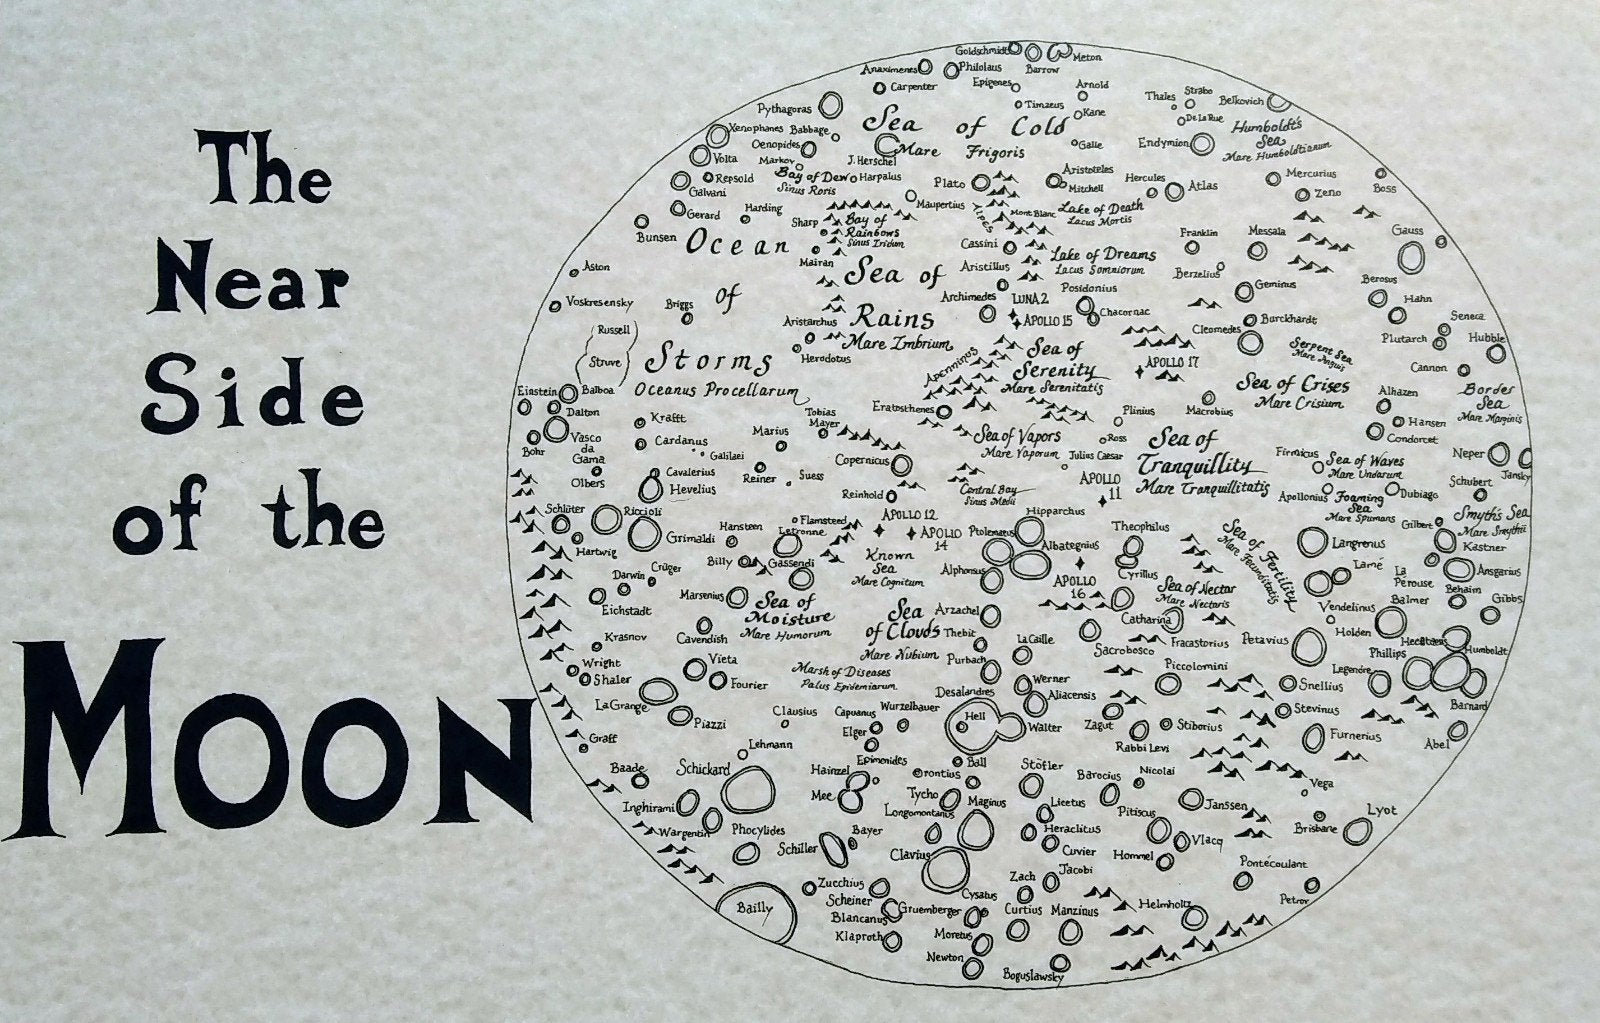 The
Near
Side
of the
Moon
Goldschmidt
Meton
Barrow
Anaximenes
Philolaus
Epigenes
Carpenter
Arnold
Timaeus
Kane
Thales
Strabo
Belkovich
De La Rue
Pythagoras
Sea of Cold
Mare Frigoris
Galle
Endymion
Humboldt's
Sea
Mare Humboldtianum
Xenophanes
Babbage
Oenopides
J. Herschel
Volta
Markov
Bay of Dew
Sinus Roris
Harpalus
Repsold
Galvani
Plato
Aristoteles
Mitchell
Hercules
Atlas
Mercurius
Zeno
Boss
Gerard
Harding
Maupertius
Alpes
Mont Blanc
Lake of Death
Lacus Mortis
Sharp
Bay of
Rainbows
Sinus Iridum
Bunsen
Ocean
of
Storms
Oceanus Procellarum
Mairan
Cassini
Lake of Dreams
Lacus Somniorum
Franklin
Messala
Gauss
Berzelius
Aston
Sea of
Rains
Mare Imbrium
Aristillus
Posidonius
Geminus
Berosus
Hahn
Voskresensky
Briggs
Archimedes
LUNA 2
APOLLO 15
Chacornac
Seneca
Aristarchus
Herodotus
Russell
Struve
Cleomedes
Burckhardt
Plutarch
Hubble
Apenninus
Sea of
Serenity
Mare Serenitatis
APOLLO 17
Serpent Sea
Mare Anguis
Cannon
Einstein
Balboa
Sea of Crises
Mare Crisium
Alhazen
Border
Sea
Mare Marginis
Dalton
Krafft
Tobias
Mayer
Eratosthenes
Plinius
Macrobius
Hansen
Vasco
da
Gama
Bohr
Cardanus
Marius
Galilaei
Sea of Vapors
Mare Vaporum
Ross
Julius Caesar
Sea of
Tranquillity
Mare Tranquillitatis
Condorcet
Firmicus
Sea of Waves
Mare Undarum
Neper
Jansky
Olbers
Cavalerius
Hevelius
Reiner
Suess
Copernicus
Reinhold
Central Bay
Sinus Medii
APOLLO
11
Apollonius
Foaming
Sea
Mare Spumans
Dubiago
Schubert
Schlüter
Riccioli
Hartwig
Grimaldi
Hansteen
Flamsteed
Letronne
APOLLO 12
APOLLO
14
Ptolemaeus
Hipparchus
Theophilus
Gilbert
Smyth's Sea
Mare Smythii
Kastner
Billy
Gassendi
Known
Sea
Mare Cognitum
Albategnius
Alphonsus
APOLLO
16
Cyrillus
Sea of Fertility
Mare Fecunditatis
Langrenus
Lamé
La
Pérouse
Ansgarius
Darwin
Crüger
Eichstadt
Marsenius
Sea of
Moisture
Mare Humorum
Sea
of Clouds
Mare Nubium
Arzachel
Sea of Nectar
Mare Nectaris
Catharina
Vendelinus
Balmer
Behaim
Gibbs
Krasnov
Cavendish
Thebit
La Caille
Sacrobosco
Fracastorius
Petavius
Holden
Hecataeus
Humboldt
Phillips
Wright
Shaler
Vieta
Fourier
Marsh of Diseases
Palus Epidemiarum
Purbach
Werner
Aliacensis
Piccolomini
Snellius
Legendre
Barnard
La Grange
Piazzi
Clausius
Capuanus
Wurzelbauer
Desalandres
Hell
Walter
Zagut
Stiborius
Stevinus
Graff
Lehmann
Elger
Epimenides
Ball
Rabbi Levi
Furnerius
Abel
Baade
Schickard
Hainzel
Mee
Orontius
Stöfler
Barocius
Nicolai
Vega
Inghirami
Tycho
Longomontanus
Maginus
Licetus
Pitiscus
Janssen
Brisbane
Lyot
Wargentin
Phocylides
Schiller
Bayer
Clavius
Heraclitus
Cuvier
Hommel
Vlacq
Pontécoulant
Bailly
Zucchius
Scheiner
Blancanus
Klaproth
Gruemberger
Cysatus
Zach
Jacobi
Curtius
Manzinus
Helmholtz
Petrov
Moretus
Newton
Boguslawsky